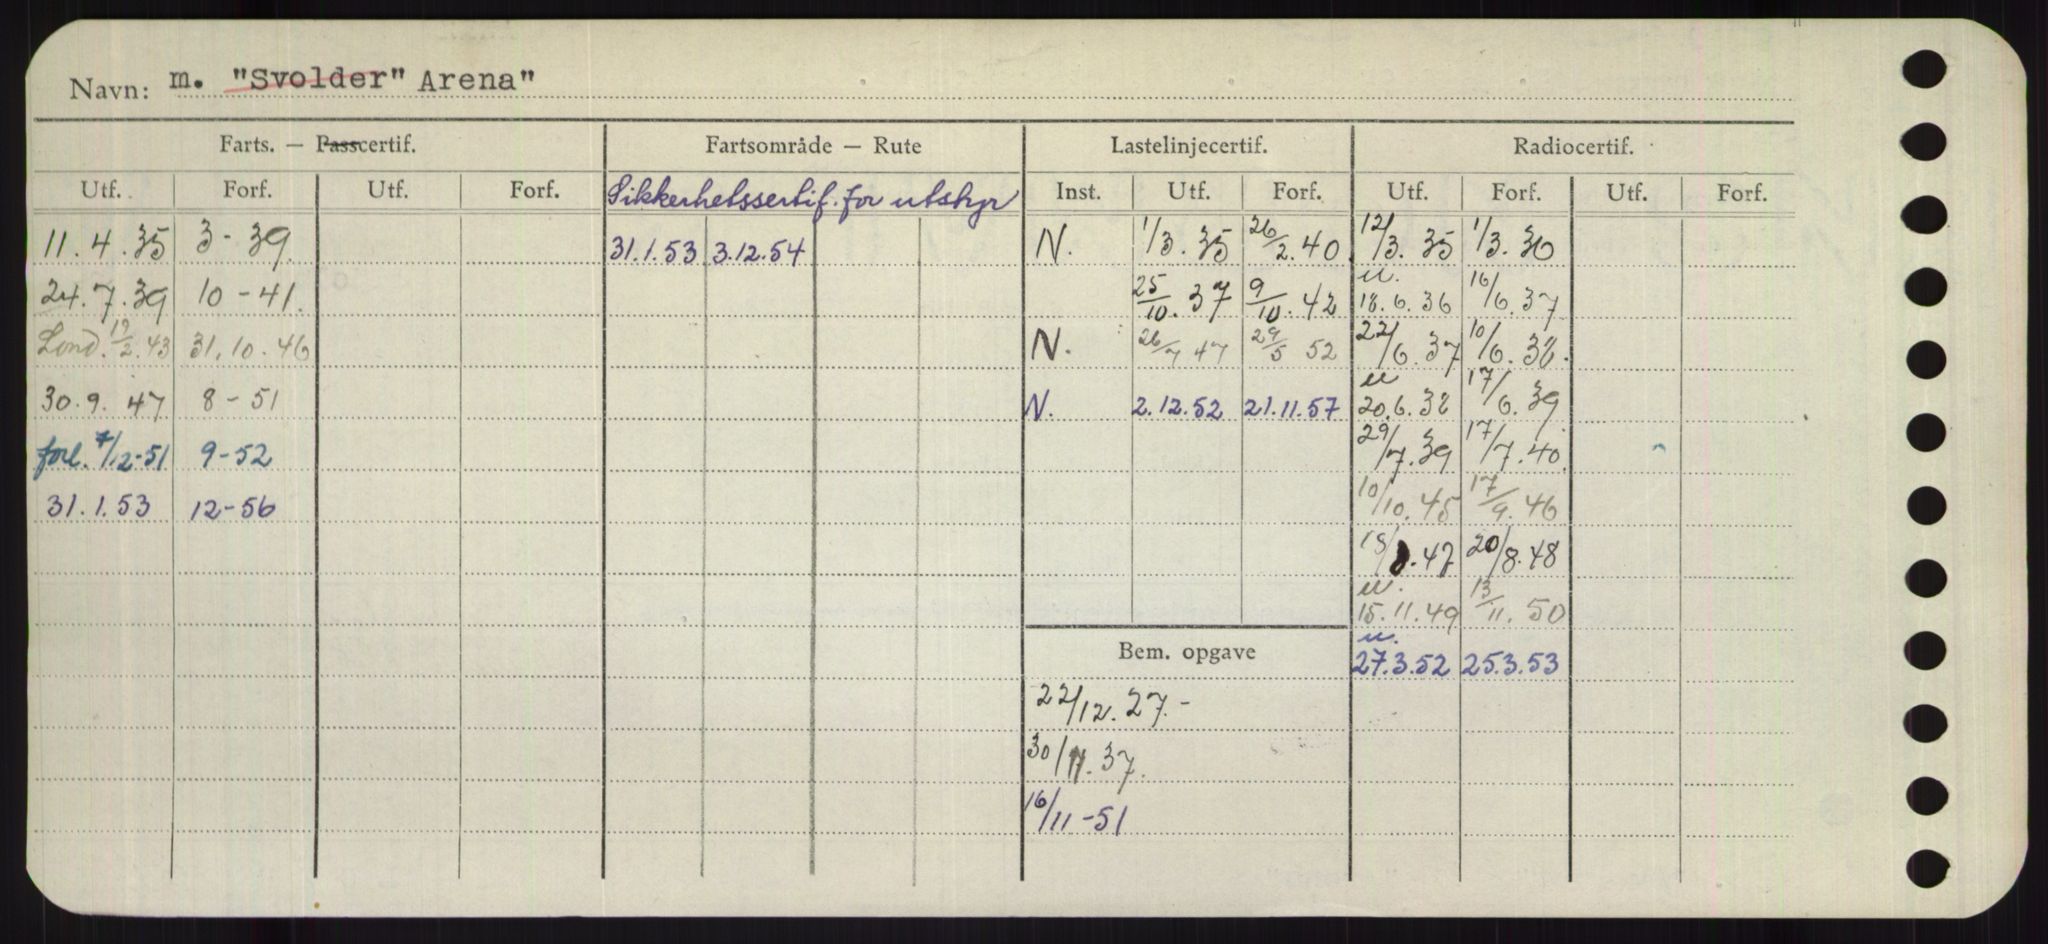 Navn: m. "Svolder" Arena"
Farts. — Passcertif. Fartsområde — Rute Lastelinjecertif. Radiocertif.
Utf. Forf. Utf. Forf. Sikkerhetssertif. for utstyr Inst. Utf. Forf. Utf. Forf. Utf. Forf.
11.4.35 3-39. 31.1.53 3.12.54 N. 1/3.35 26/2.40 12/3.35 1/3.36
24.7.39 10-41. 25/10.37 9/10.42 u. 18.6.36 16/6.37
Lond. 19/2.43 31.10.46 N. 26/7 47 29/5 52 22/6.37 10/6.38.
30.9.47 8-51 N. 2.12.52 21.11.57 u 20.6.38 17/6.39
forl. 7/12-51 9-52 29/7.39 17/7.40
31.1.53 12-56 10/10.45 17/9.46
18/8.47 20/8.48
u. 15.11.49 13/11.50
Bem. opgave u. 27.3.52 25.3.53
22/12.27.-
30/11.37.
16/11-51